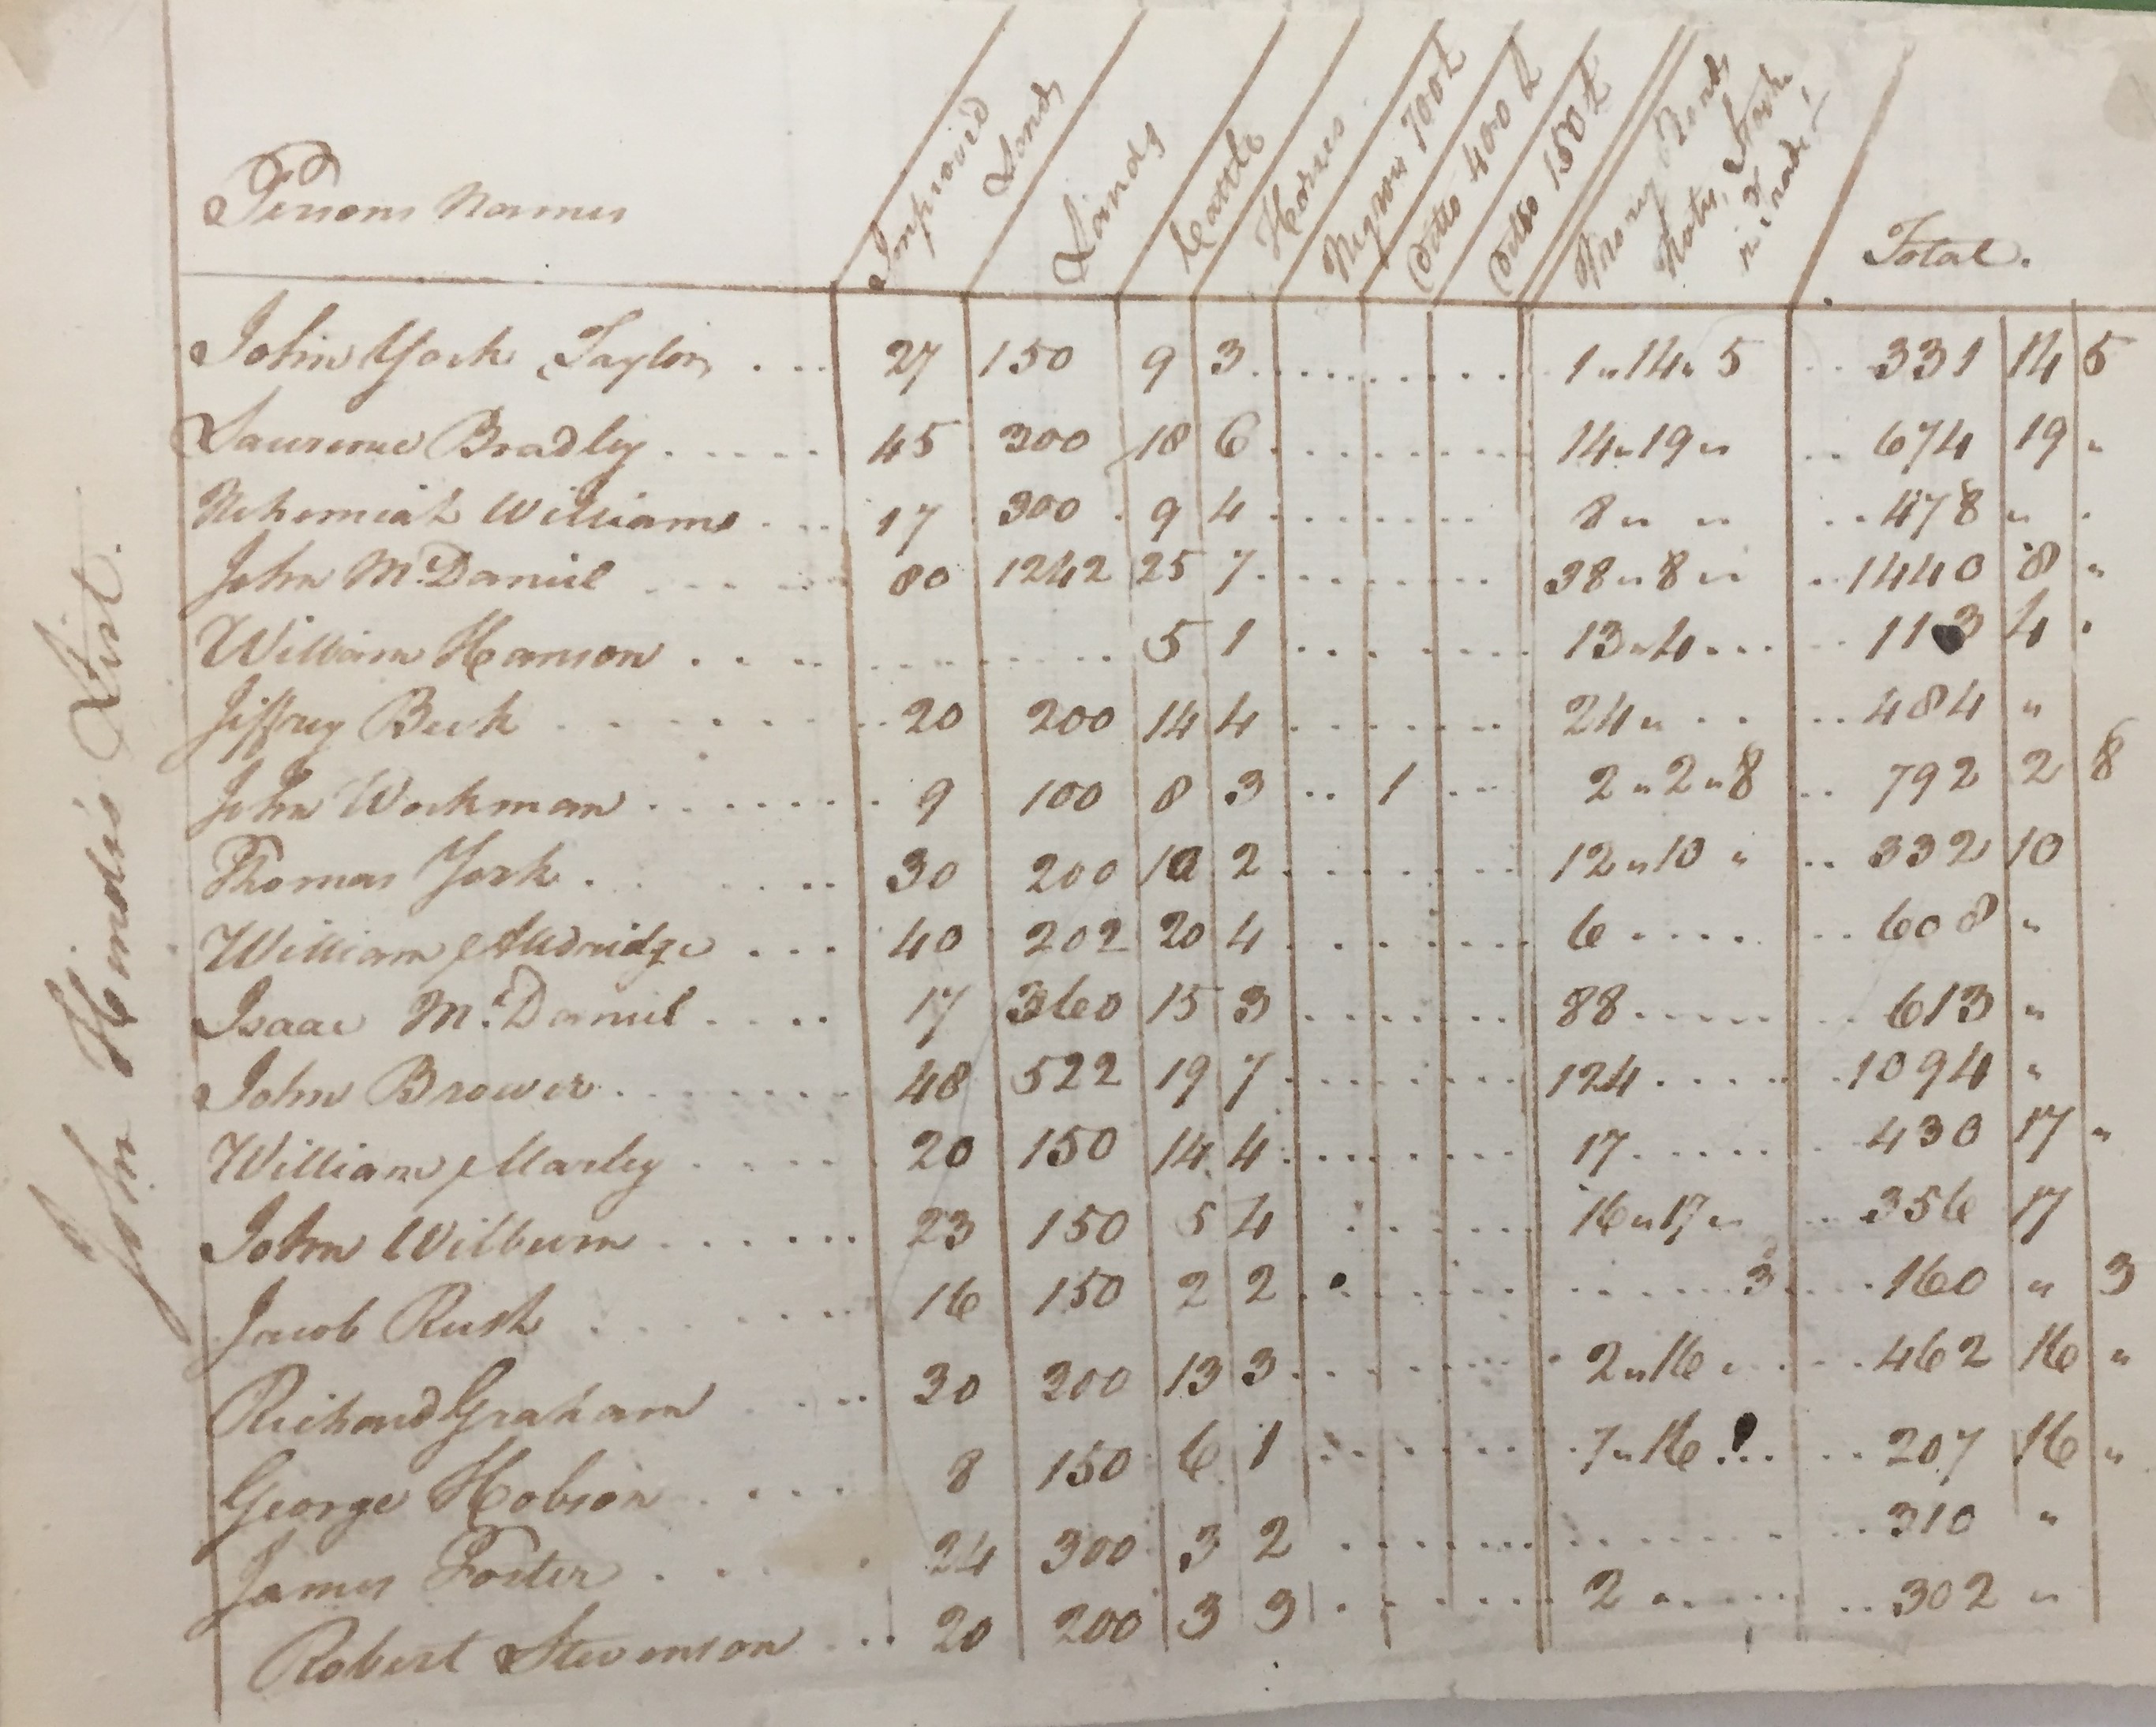 John Hinds's List.
Persons Names Improved Lands Lands Cattle Horses Negroes 700£ Ditto 400£ Ditto 150£ Money Bonds Notes, Stock in trade Total.
John York Taylor ... 27 150 9 3 ......... 1"14"5 .. 331 14 5
Laurence Bradley ..... 45 300 18 6 ........ 14"19" .. 674 19 "
Nehemiah Williams ... 17 300 9 4 ....... 8 " " .. 478 " .
John McDaniel .... 80 1242 25 7 ....... 38"8" . 1440 8 "
William Hanson ... 5 1 ....... 13"4... .. 113 4 .
Jeffrey Beck ....... 20 200 14 4 ....... 24" .. .. 484 "
John Workman ....... 9 100 8 3 .. 1 .. 2"2"8 .. 792 2 8
Thomas York ..... 30 200 10 2 ....... 12"10 " .. 332 10
William Alldridge ... 40 202 20 4 ....... 6 ..... .. 608 "
Isaac McDaniel .... 17 360 15 3 ....... 88 ..... .. 613 "
John Brower ....... 48 522 19 7 ........ 124 ..... . 1094 "
William Marley ..... 20 150 14 4 ........ 17 ...... .. 430 17 "
John Wilburn ...... 23 150 5 4 ...... 16"17" .. 356 17
Jacob Rush ...... 16 150 2 2 ....... 3 .. 160 " 3
Richard Graham .... 30 200 13 3 ....... 2"16 . .. 462 16 "
George Hobson .... 8 150 6 1 ....... 7"16 .. 207 16 "
James Foster ... 24 300 3 2 ....... .. 310 "
Robert Stevenson ... 20 200 3 3 ....... 2 ..... .. 302 "